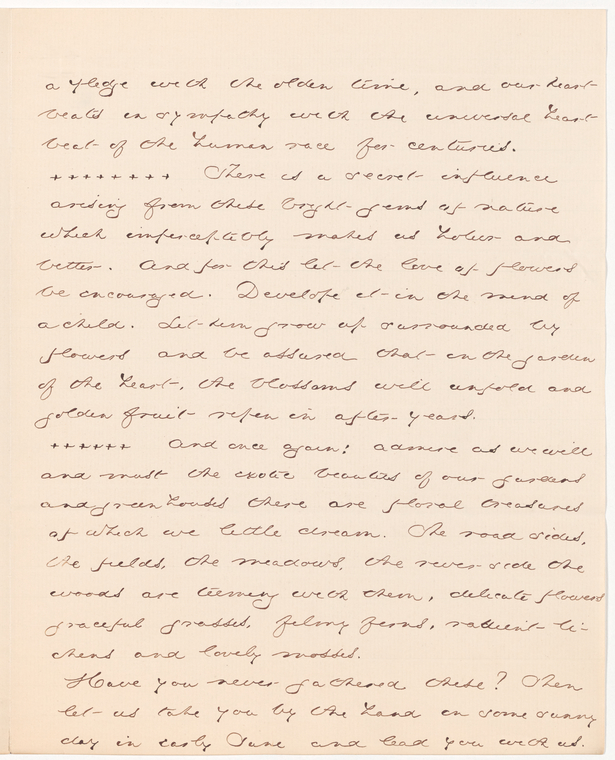 a pledge with the olden time, and our heart
beats in sympathy with the universal heart-
beat of the human race for centuries.
++++++++ There is a secret influence
arising from these bright gems of nature
which imperceptibly makes us holier and
better. And for this let the love of flowers
be encouraged. Develope it in the mind of
a child. Let him grow up surrounded by
flowers and be assured that in the garden
of the heart, the blossoms will unfold and
golden fruit ripen in after years.
++++++ And once again! admire as we will
and must the exotic beauties of our gardens
and greenhouses there are floral treasures
of which we little dream. The road sides,
the fields, the meadows, the river-side the
woods are teeming with them, delicate flowers
graceful grasses, filmy ferns, radient li-
chens and lovely mosses.
Have you never gathered these? Then
let us take you by the hand on some sunny
day in early June and lead you with us.